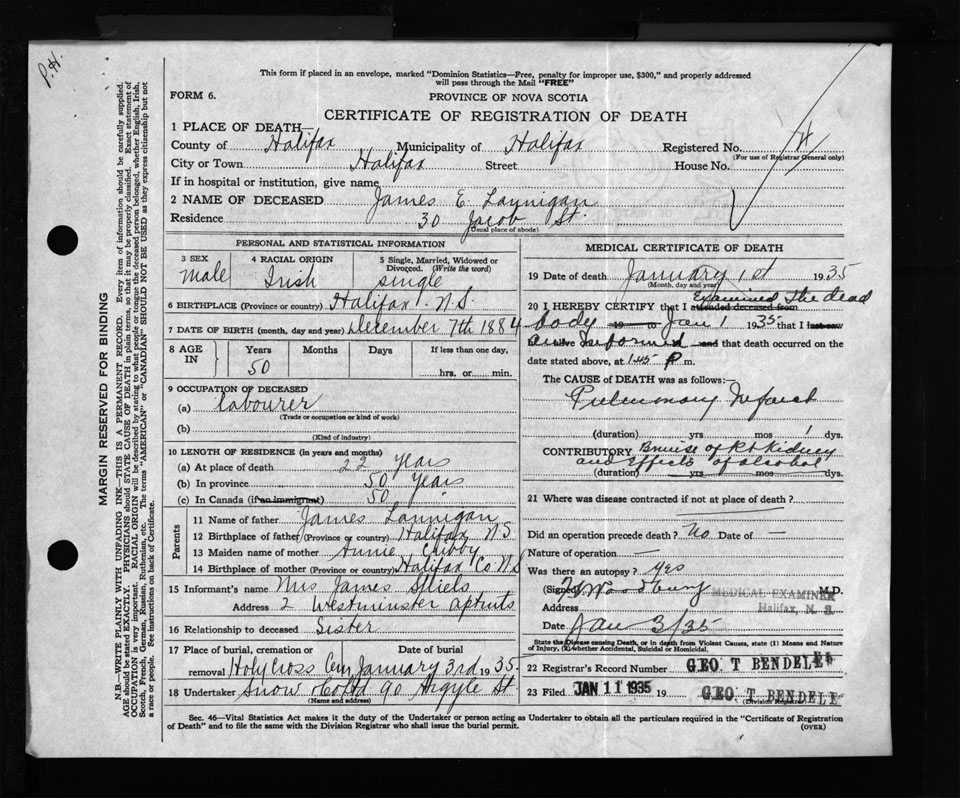 P.H.
This form if placed in an envelope, marked "Dominion Statistics—Free, penalty for improper use, $300," and properly addressed
will pass through the Mail "FREE"
FORM 6.
PROVINCE OF NOVA SCOTIA
CERTIFICATE OF REGISTRATION OF DEATH
1 PLACE OF DEATH—
County of Halifax Municipality of Halifax Registered No.
(For use of Registrar General only)
City or Town Halifax Street House No.
If in hospital or institution, give name
2 NAME OF DECEASED James E. Lannigan
Residence 30 Jacob St.
(Usual place of abode)
PERSONAL AND STATISTICAL INFORMATION
3 SEX male
4 RACIAL ORIGIN Irish
5 Single, Married, Widowed or Divorced. (Write the word) single
6 BIRTHPLACE (Province or country) Halifax N.S.
7 DATE OF BIRTH (month, day and year) December 7th 1884
8 AGE IN Years 50 Months Days If less than one day, hrs. or min.
9 OCCUPATION OF DECEASED
(a) labourer
(Trade or occupation or kind of work)
(b)
(Kind of industry)
10 LENGTH OF RESIDENCE (in years and months)
(a) At place of death 22 years
(b) In province 50 years
(c) In Canada (if an immigrant) 50
Parents
11 Name of father James Lannigan
12 Birthplace of father (Province or country) Halifax N S
13 Maiden name of mother Annie
14 Birthplace of mother (Province or country) Halifax Co. N S
15 Informant's name Mrs James
Address 2 Westminster aptmts
16 Relationship to deceased Sister
17 Place of burial, cremation or removal Holy Cross Cem Date of burial January 3rd 1935
18 Undertaker Snow & Co Ltd 90 Argyle St.
(Name and address)
MEDICAL CERTIFICATE OF DEATH
19 Date of death January 1st 1935
(Month, day and year)
20 I HEREBY CERTIFY that I attended deceased from Examined the dead
body 19 to Jan 1 1935 that I last saw
informed and that death occurred on the
date stated above, at 1.45 P m.
The CAUSE OF DEATH was as follows:—
Pulmonary Infarct
(duration) yrs mos 1 dys.
CONTRIBUTORY Bruise of Rt Kidney
and effects of alcohol
(duration) yrs mos dys.
21 Where was disease contracted if not at place of death?
Did an operation precede death? No Date of —
Nature of operation —
Was there an autopsy? yes
(Signed) Woodbury M.D.
MEDICAL EXAMINER
Halifax, N. S.
Address
Date Jan 3/35
State the Disease causing Death, or in death from Violent Causes, state (1) Means and Nature
of Injury, (2) whether Accidental, Suicidal or Homicidal.
22 Registrar's Record Number GEO. T BENDELE
23 Filed JAN 11 1935 19 GEO. T BENDELE
(Division Registrar)
Sec. 46—Vital Statistics Act makes it the duty of the Undertaker or person acting as Undertaker to obtain all the particulars required in the "Certificate of Registration
of Death" and to file the same with the Division Registrar who shall issue the burial permit.
(OVER)
MARGIN RESERVED FOR BINDING
N.B.—WRITE PLAINLY WITH UNFADING INK—THIS IS A PERMANENT RECORD. Every item of information should be carefully supplied.
AGE should be stated EXACTLY. PHYSICIANS should STATE CAUSE OF DEATH in plain terms, so that it may be properly classified. Exact statement of
OCCUPATION is very important. RACIAL ORIGIN will be described by stating to what people or tongue the deceased person belonged, whether English, Irish,
Scotch, French, German, Russian, Ruthenian, etc. The terms "AMERICAN" or "CANADIAN" SHOULD NOT BE USED as they express citizenship but not
a race or people. See instructions on back of Certificate.